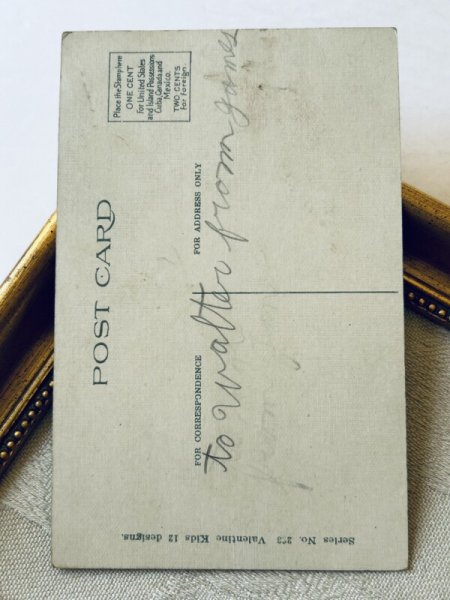 POST CARD
Place the Stamp here
ONE CENT
For United States
and Island Possessions
Cuba, Canada and
Mexico.
TWO CENTS
For Foreign.
FOR CORRESPONDENCE
FOR ADDRESS ONLY
to Walter from James
from
Series No. Valentine Kids 12 designs.